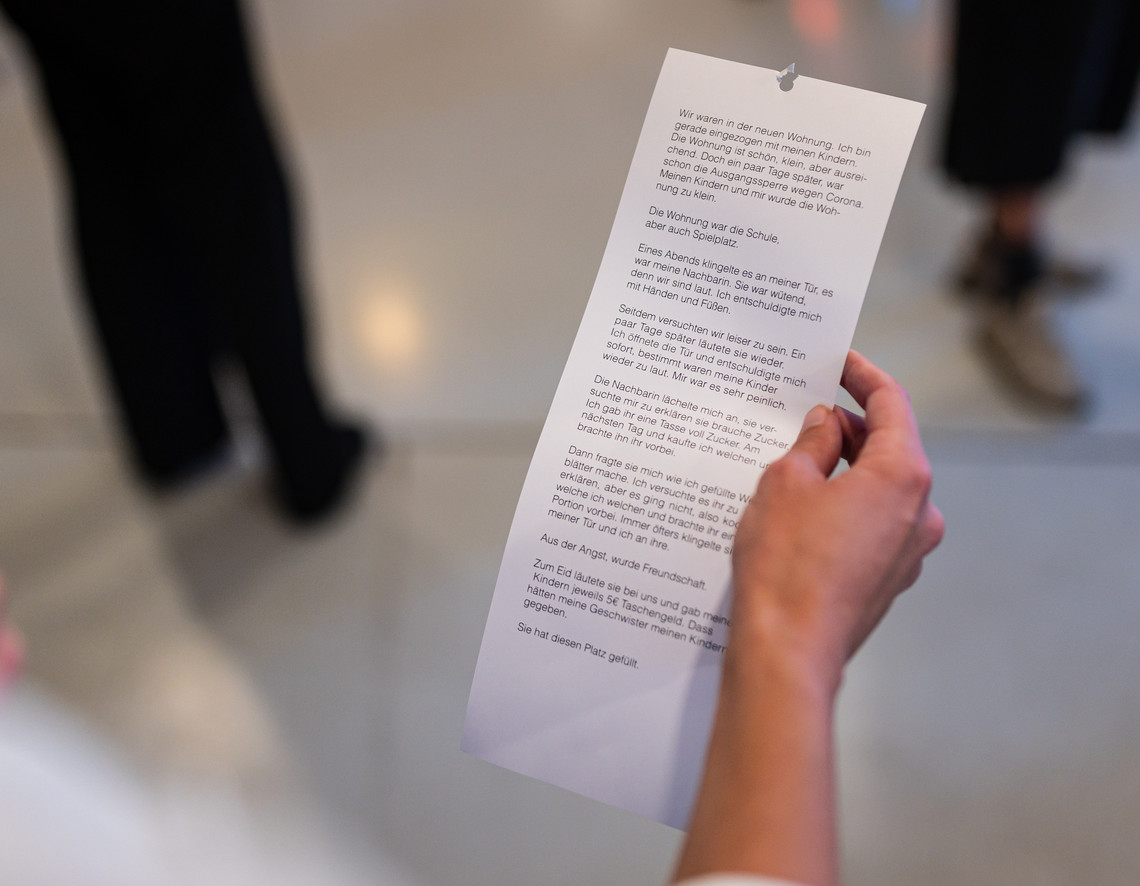 Wir waren in der neuen Wohnung. Ich bin
gerade eingezogen mit meinen Kindern.
Die Wohnung ist schön, klein, aber ausrei-
chend. Doch ein paar Tage später, war
schon die Ausgangssperre wegen Corona.
Meinen Kindern und mir wurde die Woh-
nung zu klein.
Die Wohnung war die Schule,
aber auch Spielplatz.
Eines Abends klingelte es an meiner Tür, es
war meine Nachbarin. Sie war wütend,
denn wir sind laut. Ich entschuldigte mich
mit Händen und Füßen.
Seitdem versuchten wir leiser zu sein. Ein
paar Tage später läutete sie wieder.
Ich öffnete die Tür und entschuldigte mich
sofort, bestimmt waren meine Kinder
wieder zu laut. Mir war es sehr peinlich.
Die Nachbarin lächelte mich an, sie ver-
suchte mir zu erklären sie brauche Zucker.
Ich gab ihr eine Tasse voll Zucker. Am
nächsten Tag und kaufte ich welchen
brachte ihn ihr vorbei.
Dann fragte sie mich wie ich gefüllte
blätter mache. Ich versuchte es ihr zu
erklären, aber es ging nicht, also
welche ich welchen und brachte ihr
Portion vorbei. Immer öfters klingelte
meiner Tür und ich an ihre.
Aus der Angst, wurde Freundschaft.
Zum Eid läutete sie bei uns und gab meine
Kindern jeweils 5€ Taschengeld. Dass
hätten meine Geschwister meinen Kindern
gegeben.
Sie hat diesen Platz gefüllt.